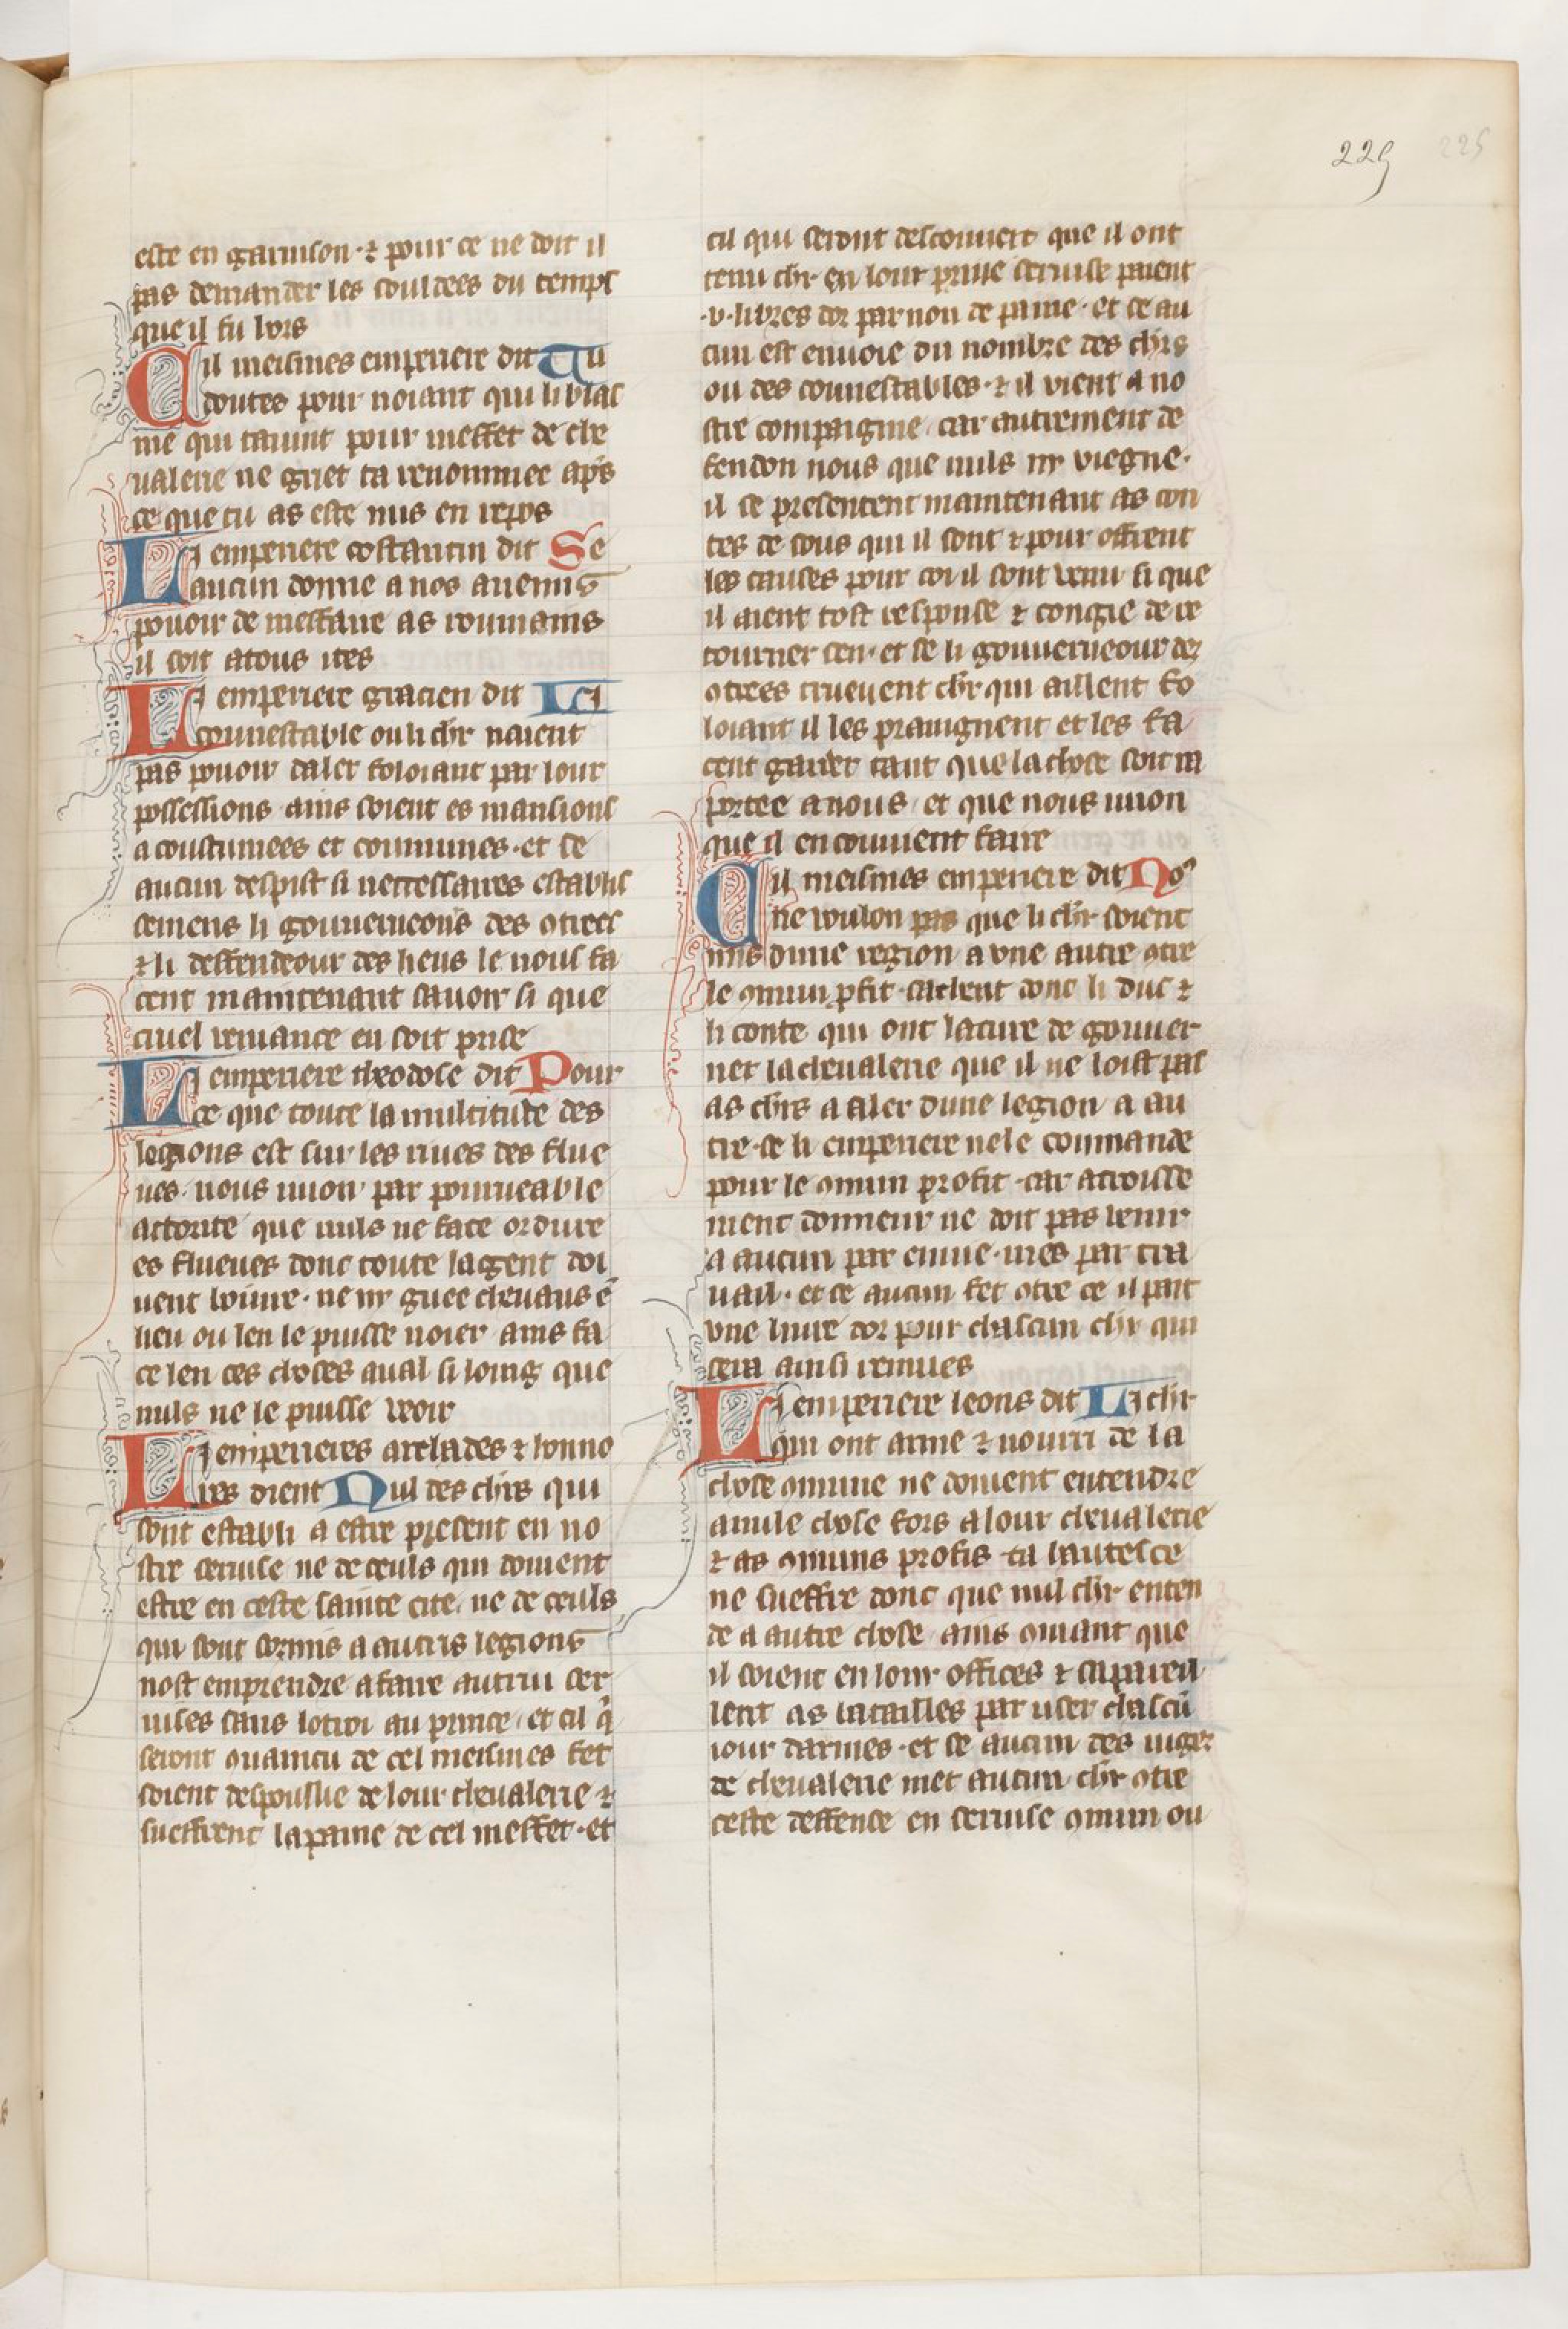 225 225
este en garnison · ⁊ pour ce ne doit il
pas demander les souldees du temps
que il fu lors
Cil meismes emperiere dit Tu
doutes pour noiant qui li blas
me qui tauint pour meffet de che
ualerie ne griet ta renommee apͤs
ce que tu as este mis en repos
Li emperiere costantin dit Se
aucun donne a nos anemis
pouoir de meffaire as roumains
il soit atous ires
Li emperiere gracien dit Li
connestable ou li chr̄ naient
pas pouoir daler foloiant par lour
possessions ains soient es mansions
a coustumees et communes · et se
aucun despist si neccessaires establis
semens li gouuerneours des ꝯtrees
⁊ li deffendeour des lieus le nous fa
cent maintenant sauoir si que
cruel veniance en soit prise
Li emperiere theodose dit Pour
ce que toute la multitude des
legions est sur les riues des flue
ues · nous uuion par pourueable
actorite que nuls ne face ordure
es flueues donc toute la gent doi
uent boiure · ne ny guee cheuaus ē
lieu ou len le puisse noier ains fa
ce len ces choses aual si loing que
nuls ne le puisse veoir
Li emperieres arcades ⁊ honno
ires dient Nul des chrs̄ qui
sont establi a estre present en no
stre seruise ne de ceuls qui doiuent
estre en ceste sainte cite · ne de ceuls
qui sont sormis a autris legions
nost emprendre a faire autrui ser
uises sans lotroi au prince · et cil q̄
seront ꝯuaincu de cel meismes fet
soient despoullie de lour cheualerie ⁊
sueffrent la paine de cel meffet · et
cil qui seront descouuert que il ont
tenu chr̄ en lour priue seruise paient
·v· liures dor par non de paine · et se au
cun est enuoie du nombre des chrs̄
ou des connestables · ⁊ il vient a no
stre compaignie car autrement de
fendon nous que nuls ny viegne ·
il se presentent maintenant as con
tes de sous qui il sont ⁊ pour offrent
les causes pour coi il sont venu si que
il aient tost response ⁊ congie de re
tourner sen · et se li gouuerneour dez
ꝯtrees trueuent chr̄ qui aillent fo
loiant il les praingnent et les fa
cent garder tant que la chose soit ra
portee a nous · et que nous uuion
que il en couuient faire
Cil meismes emperiere dit Noꝰ
ne voulon pas que li chr̄ soient
mis dune region a vne autre ꝯtre
le ꝯmun ꝓfit · sachent donc li duc ⁊
li conte qui ont la cure de gouuer
ner la cheualerie que il ne loist pas
as chrs̄ a aler dune legion a au
tre · se li emperiere ne le commande
pour le ꝯmun profit · car acroisse
ment donneur ne doit pas venir
a aucun par enuie · mes par tra
uail · et se aucun fet ꝯtre ce il pait
vne liure dor pour chascun chr̄ qui
sera ainsi remues
Li emperiere leons dit Li chr̄
qui ont arme ⁊ nourri de la
chose ꝯmune ne doiuent entendre
a nule chose fors a lour cheualerie
⁊ as ꝯmuns profis ta hautesce
ne sueffre donc que nul chr̄ enten
de a autre chose ains ꝯmant que
il soient en lour offices ⁊ sapareil
lent as batailles par user chascū
iour darmes · et se aucun des iugez
de cheualerie met aucun chr̄ ꝯtre
ceste deffence en seruise ꝯmun ou